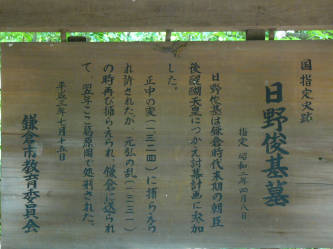 国指定史跡
日野俊基墓
指定 昭和二年四月八日
日野俊基は鎌倉時代末期の朝臣
後醍醐天皇につかえ討幕計画に参加
した。
正中の変（一三二四）に捕らえら
れ許されたが、元弘の乱（一三三一）
の時再び捕らえられ、鎌倉に送られ
て、翌年ここ葛原岡で処刑された。
平成三年七月十五日
鎌倉市教育委員会